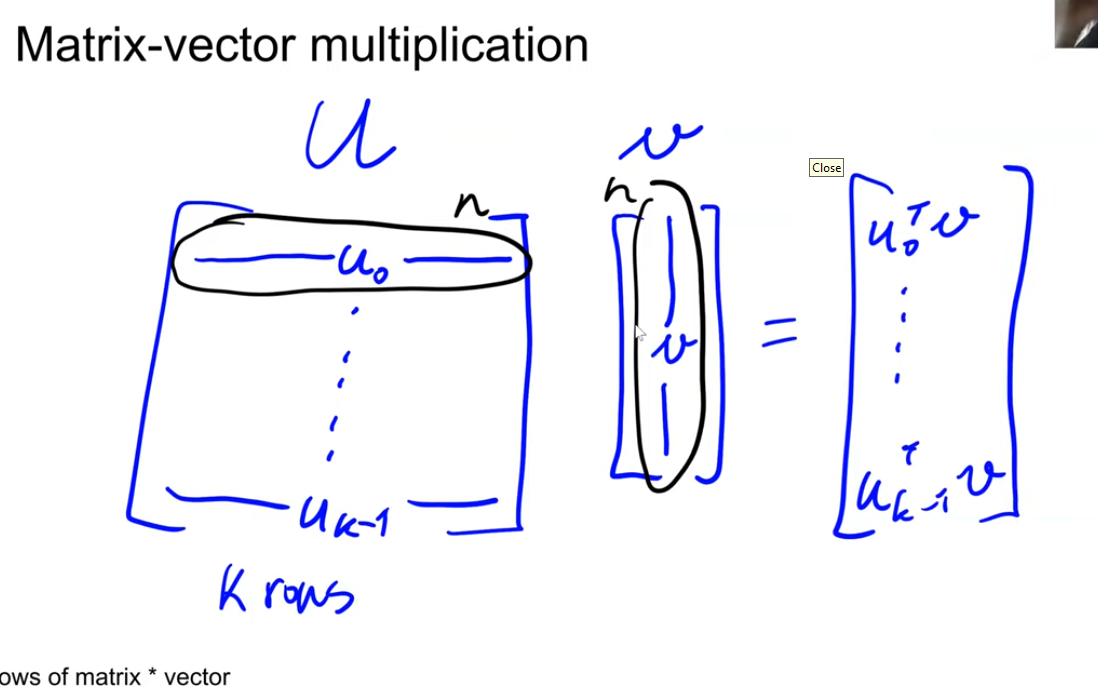 Matrix-vector multiplication
U v
Close
n n
u₀ u₀ᵀv
v =
uₖ₋₁ uᵀₖ₋₁v
K rows
ows of matrix * vector